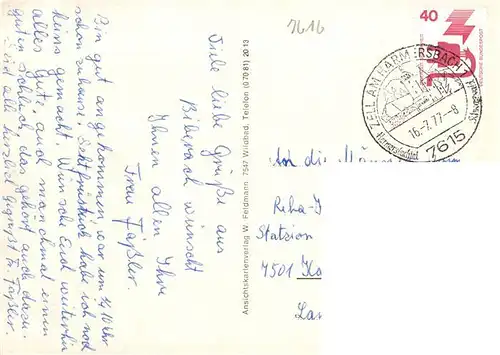 7616
40
DEUTSCHE BUNDESPOST
ZELL AM HARMERSBACH
16.-7.77-8
7615
Viele liebe Grüße aus
Biberach wünscht
Ihnen allen Ihre
Frau Fäßler.
Bin gut angekommen war um 14,10 Uhr
schon zuhause. Sektfrühstück habe ich noch
keins gemacht. Wünsche Euch weiterhin
alles Gute, auch manchmal einen
guten Schluck, das gehört auch dazu.
Seid alle herzlich Gegrüßt Fr. Fäßler.
Ansichtskartenverlag W. Feldmann 7547 Wildbad, Telefon (0 70 81) 20 13
An die
Reha-
Station
7501